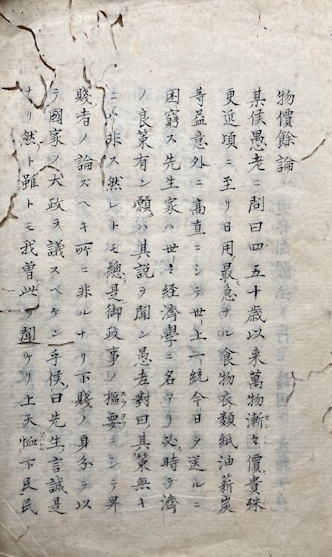 物價餘論
某侯愚老ニ問曰四五十歳以来萬物漸々價貴殊
更近頃ニ至リ日用最急ナル食物衣類紙油薪炭
等益意外ニ高直ニシテ世上一統今日ヲ送ルニ
困窮ス先生家ハ世々経済學ニ名アリ必時ヲ済
ノ良策有ン願クハ其説ヲ聞ン愚老對曰其策無キ
ニハ非ス然レトモ總是御政事ノ樞要ニシテ卑
賤者ノ論スヘキ所ニ非ルナリ下賤ノ身分ヲ以
テ國家ノ大政ヲ議スベケン乎侯曰先生ノ言誠是
ナリ然ト雖トモ我曽此ヲ聞ケリ上天恤下民民